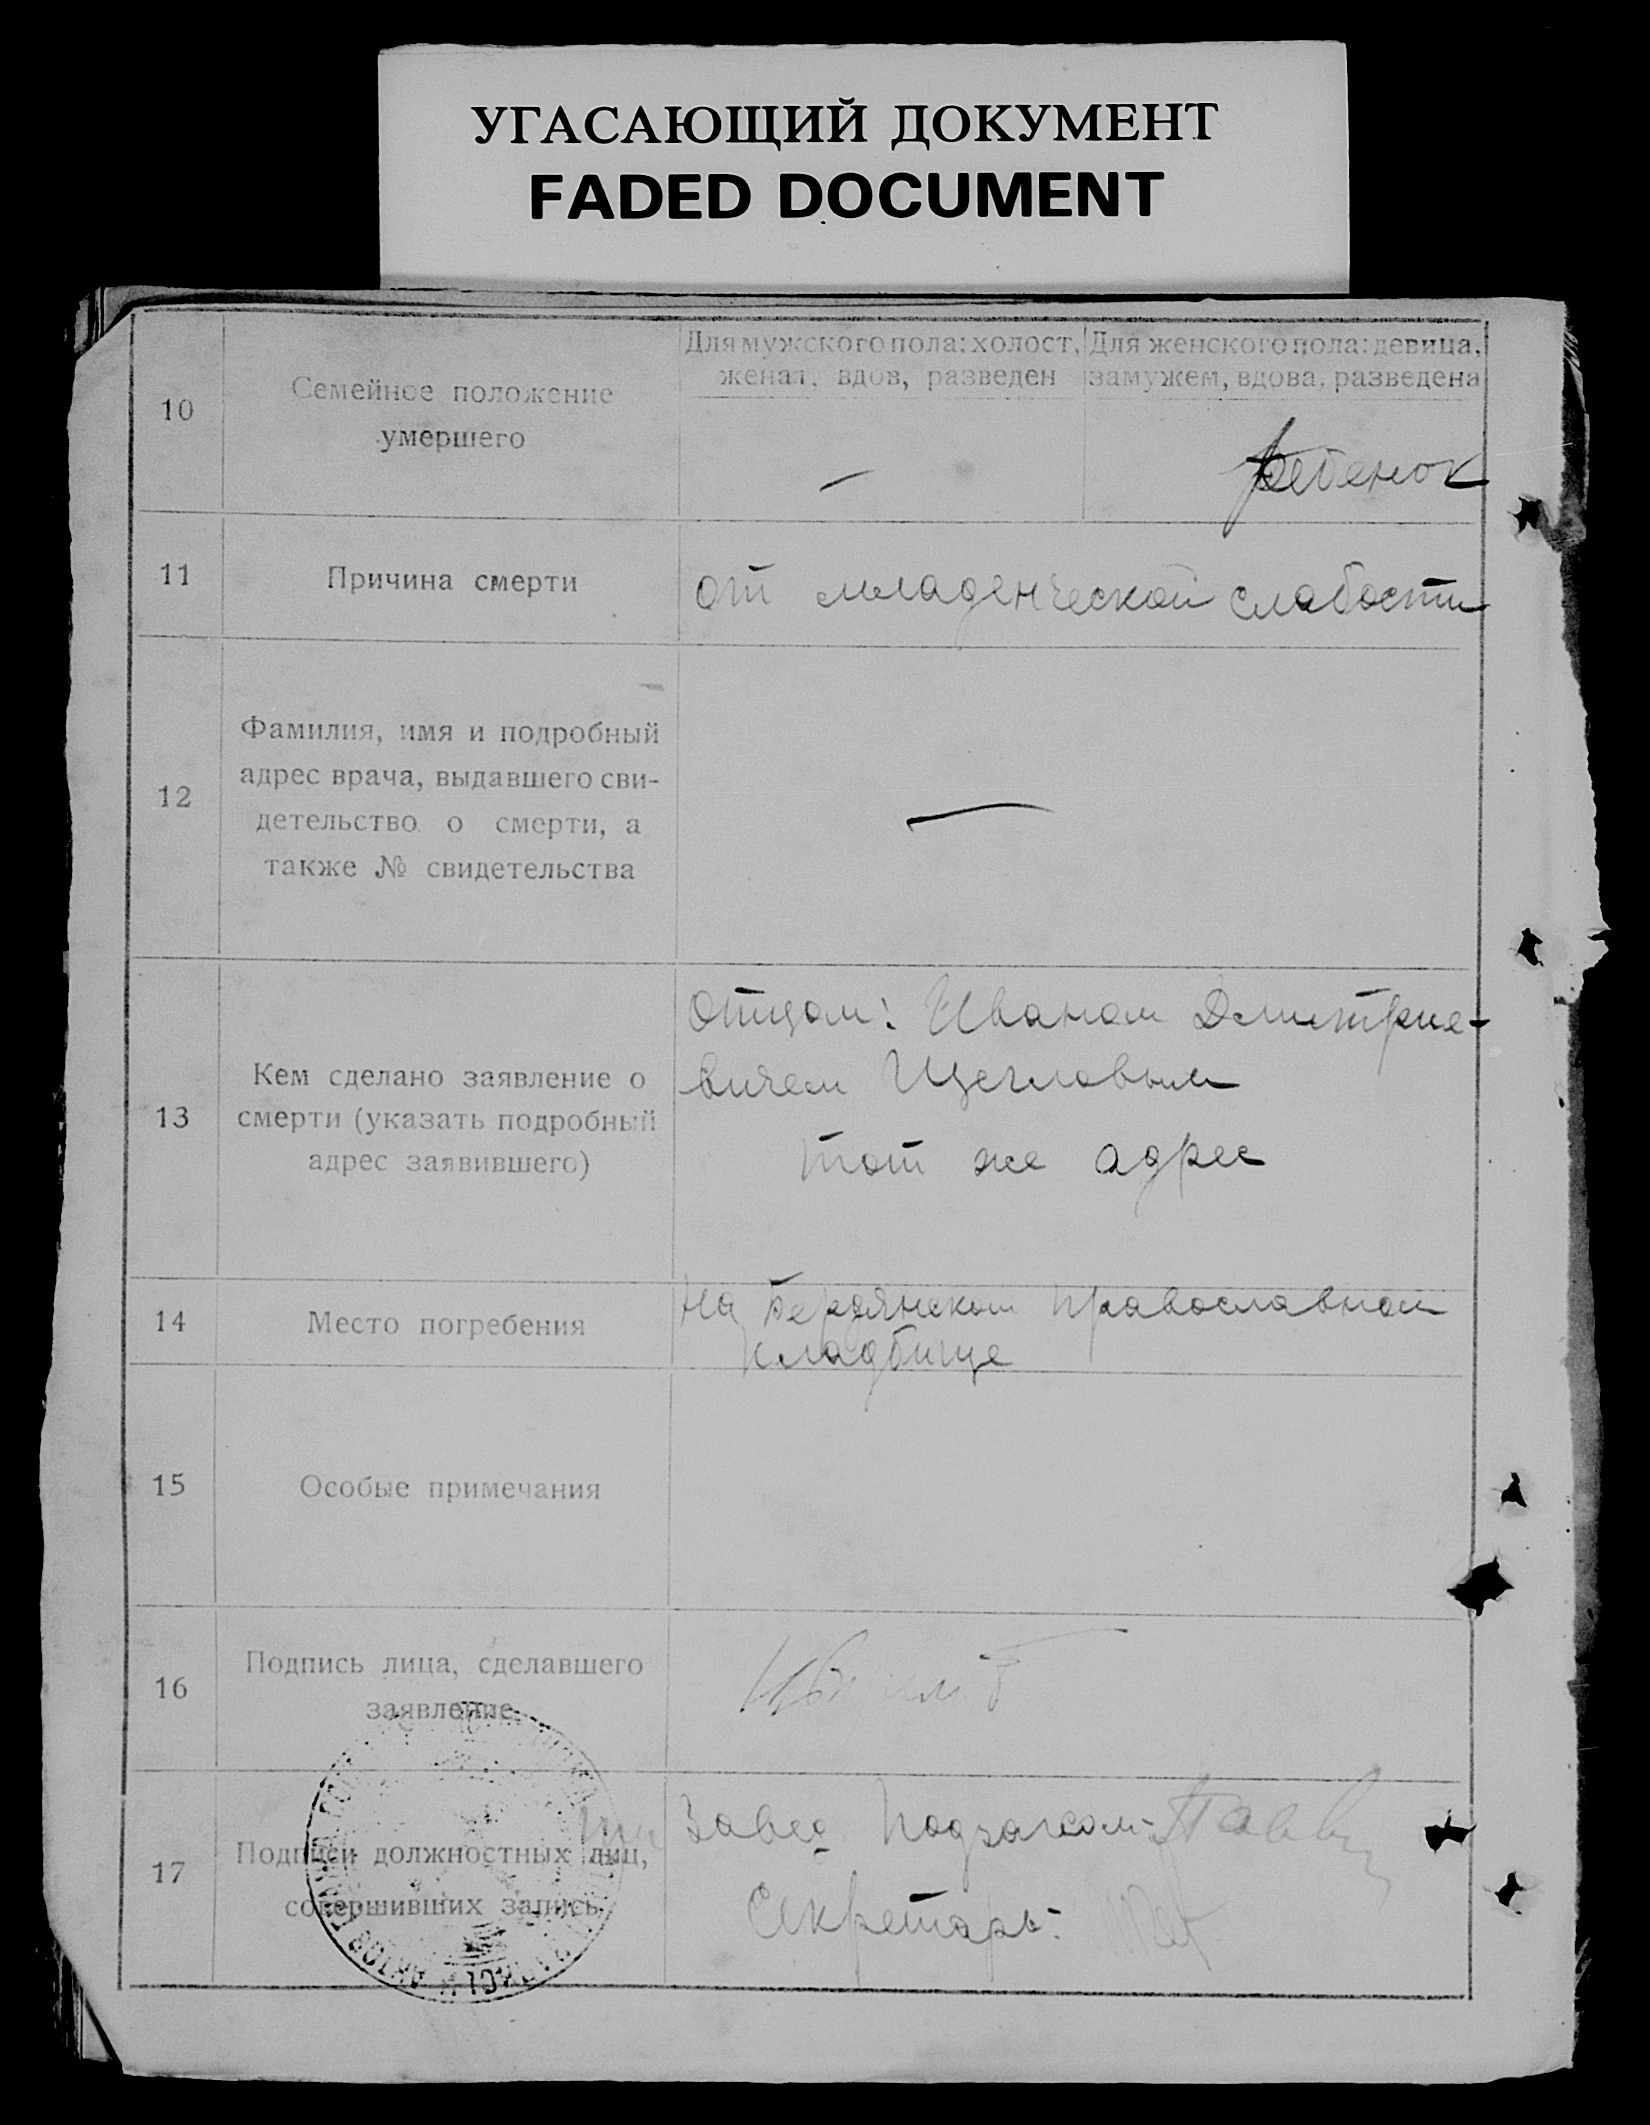 УГАСАЮЩИЙ ДОКУМЕНТ
FADED DOCUMENT
10
Семейное положение
умершего
Для мужского пола: холост,
женат, вдов, разведен
—
Для женского пола: девица,
замужем, вдова, разведена
ребенок
11
Причина смерти
от младенческой слабости
12
Фамилия, имя и подробный
адрес врача, выдавшего сви-
детельство о смерти, а
также № свидетельства
—
13
Кем сделано заявление о
смерти (указать подробный
адрес заявившего)
Отцом: Иваном Дмитрие-
вичем Щегловым
тот же адрес
14
Место погребения
На Бердянском православном
кладбище
15
Особые примечания
16
Подпись лица, сделавшего
заявление
17
Подписи должностных лиц,
совершивших запись
Завед. Подзагсом-
Секретарь: